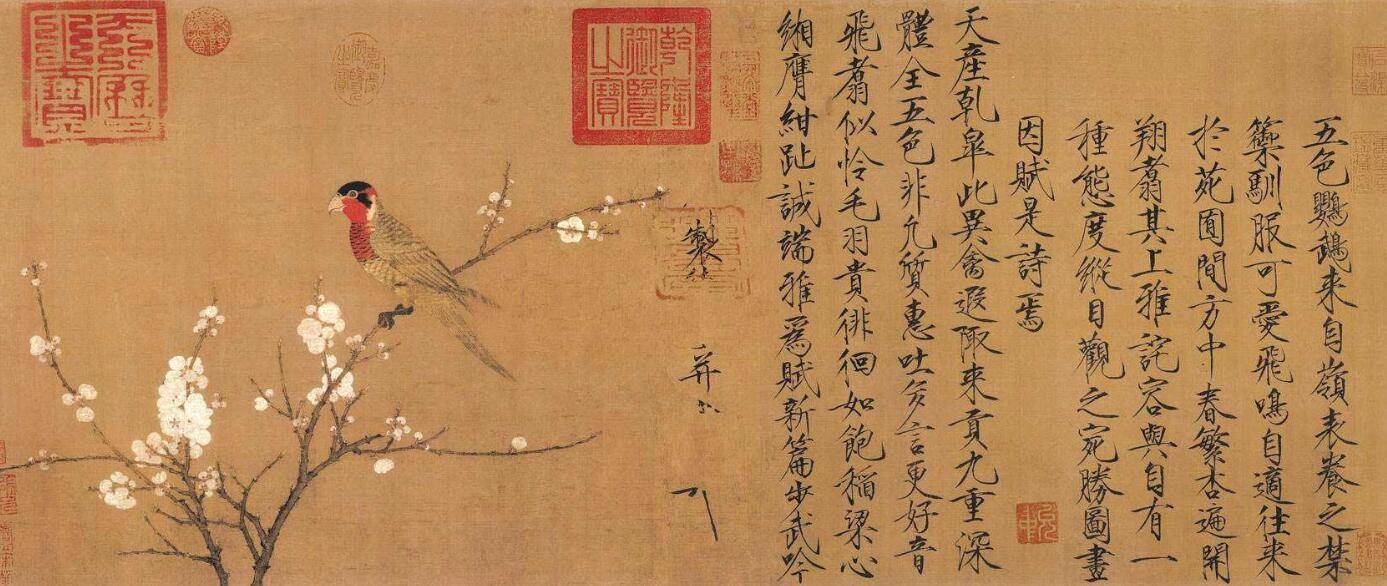 五色鸚鵡来自嶺表養之禁
籞馴服可愛飛鳴自適往来
於苑囿間方中春繁杏遍開
翔翥其上雅詫容與自有一
種態度縱目觀之宛勝圖畫
因賦是詩焉
天産乾皐此異禽遐陬来貢九重深
體全五色非凡質惠吐多言更好音
飛翥似怜毛羽貴徘徊如飽稻粱心
緗膺紺趾誠端雅爲賦新篇步武吟
製
并
乾隆御覽之寶